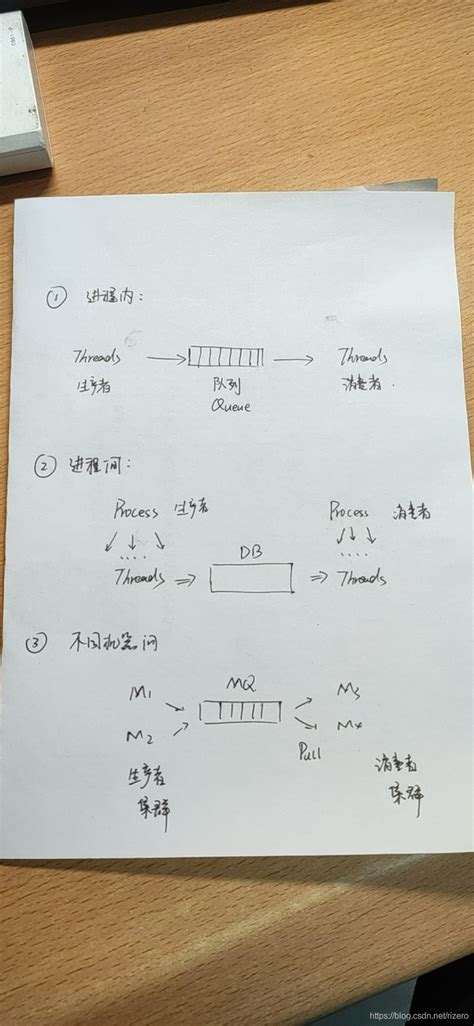 ① 进程内:
Threads
生产者
队列
Queue
Threads
消费者.
② 进程间:
Process 生产者
Threads
DB
Process 消费者
Threads
③ 不同机器间
M1
M2
MQ
M3
M4
Pull
生产者
集群
消费者
集群
https://blog.csdn.net/rizero